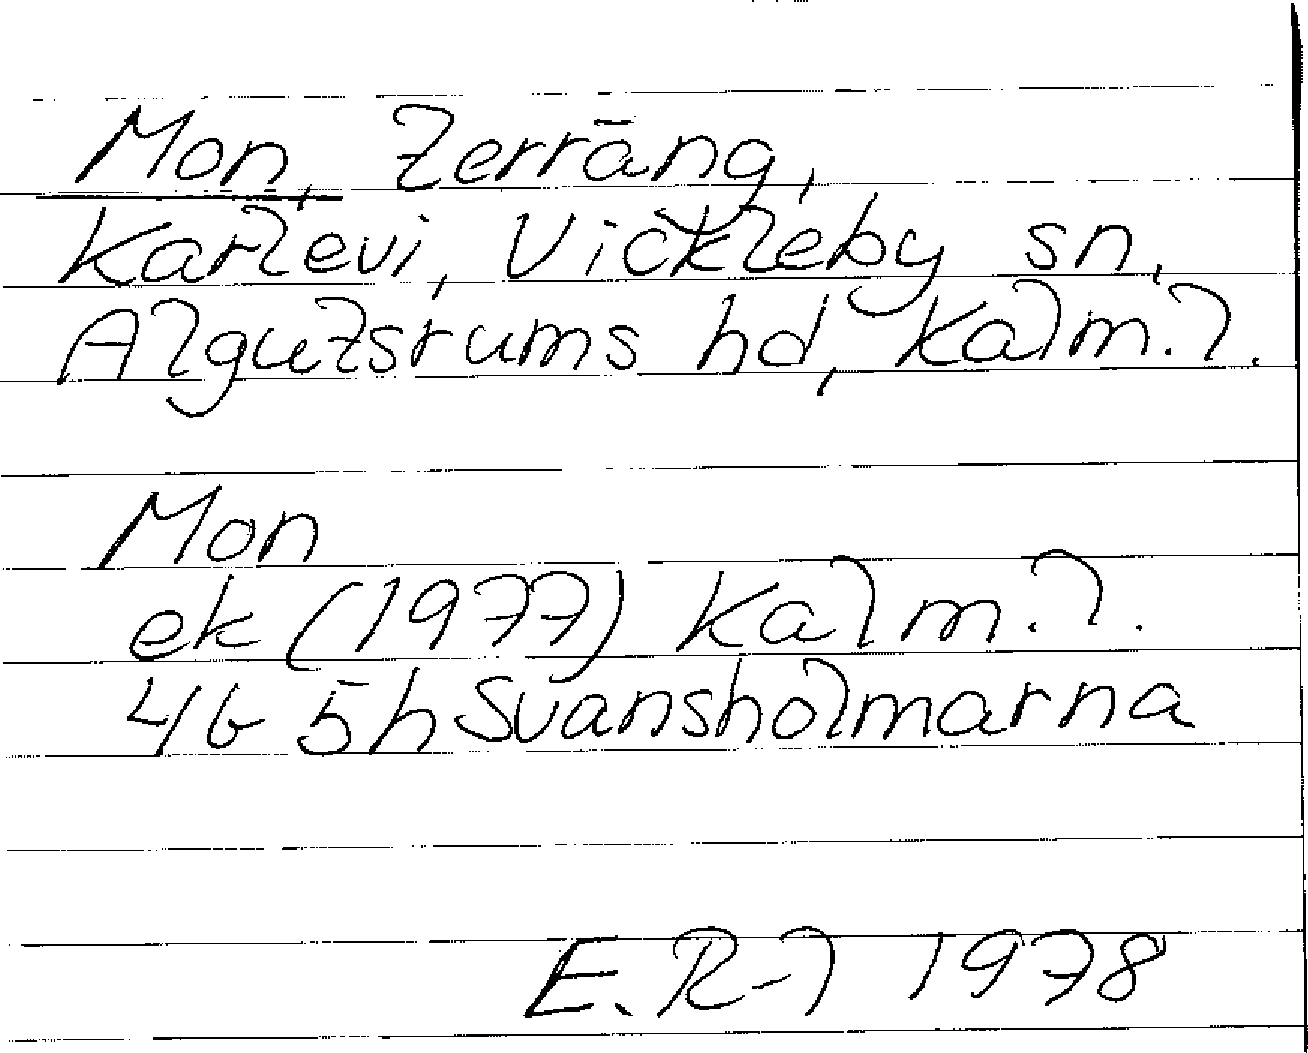 Mon, terräng,
Karlevi, Vickleby sn,
Algutsrums hd, Kalm. l.
Mon
ek (1977) Kalm. l.
4G 5h Svansholmarna
E. R-l 1978